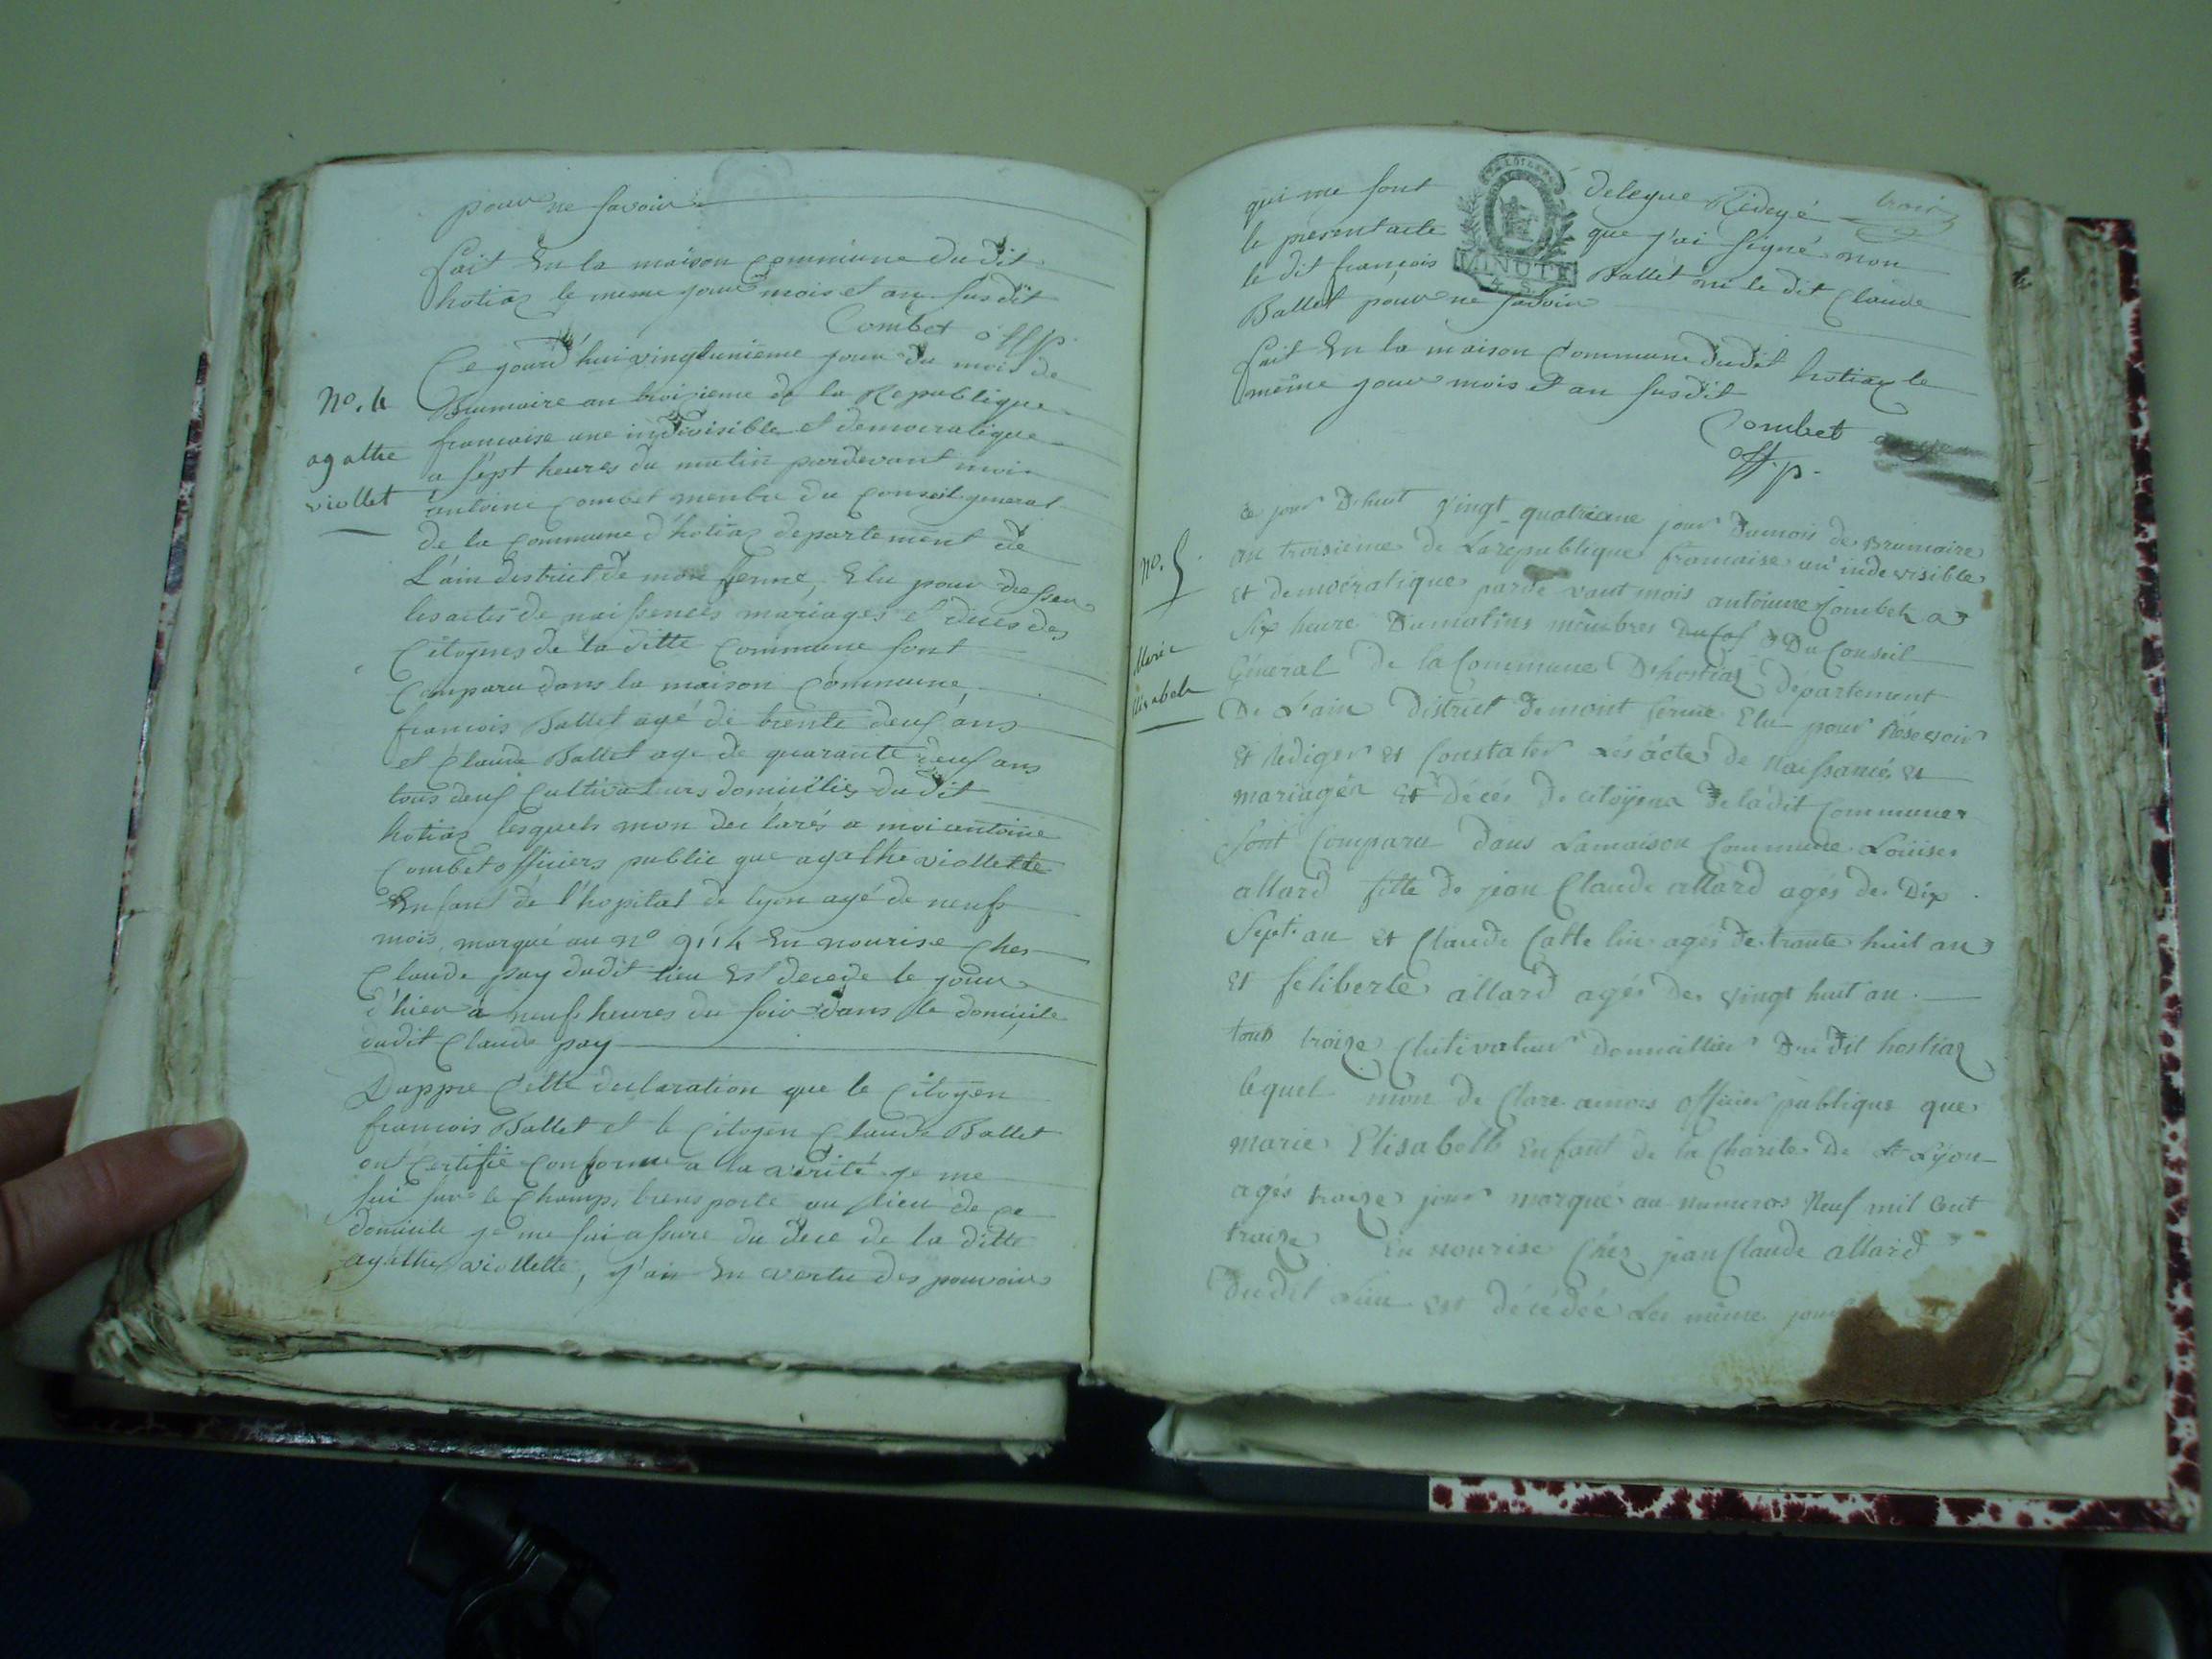 pour ne savoir
fait En la maison commune du dit
hotiaz le meme jour mois et an susdit
Combet off p.
No. 4
agathe
viollet
Ce jourd'hui vingtunieme jour du mois de
Brumaire an troisieme de la Republique
francoise une indivisible et democratique
a sept heures du matin pardevant moi
antoine Combet menbre du Conseil general
de la Commune d'hotiaz departement de
L'ain district de mon ferme, Elu pour dresser
les actes de naissences mariages et deces des
Citoyens de la ditte Commune sont
Comparu dans la maison Commune,
francois Ballet agé de trente deux ans
et Claude Ballet age de quarante deux ans
tous deux Cultivateurs domicilies du dit
hotiaz lesquels mon declarés a moi antoine
Combet officiers public que agathe viollette
Enfant de l'hopital de lyon agé de neufs
mois, marqué au no 9114 En nourise Ches
Claude pay dudit lieu Est decede le jour
d'hier à neufs heures du soir dans le domicile
dudit Claude pay
Dappre Cette declaration que le Citoyen
francois Ballet et le Citoyen Claude Ballet
ont Certifie Conforme a la verité je me
sui sure le Champs transporte au lieu de ce
domicile je me sui assure du dece de la ditte
agathe viollette, j'ai En vertu des pouvoirs
trois
qui me sont delegue Rédigé
le present acte que j'ai signé non
le dit francois Ballet ni le dit Claude
Ballet pour ne savoir
MINUTE
fait En la maison Commune dudit hotiaz le
même jour mois et an susdit
Combet
off. p.
No. 5
Marie
Elisabeth
Ce jour D'huit Vingt quatrieme jour Dumois de Brumaire
an troisieme de Larepublique francaise un inde visible
et democratique parde vant mois antoinne Combet a
six heure Dumatins membres Du Conseil
General De la Commune D'hostiaz Departement
De L'ain District Demont ferme Elu pour Resevoir
et Rediger et Constater Les acte de Naissance et
mariagea et décés De citoÿens De ladit Commune
sont Comparu Dans Lamaison Commune Louise
allard fille De jean Claude allard agés de Dix
Sept an et Claude Catte lin agés de trante huit an
et feliberte allard agés De vingt huit an.
tous troize Cultivateur Domicillier Du dit hostiaz
lequel mon De Clare amois officier publique que
marie Elisabette Enfant de la Charite De Lÿon
agés troize jour marqué au numeros Neuf mil Cent
traize En nourise Chez jean Claude allard
Dudit Lieu est décédéé Les même jour